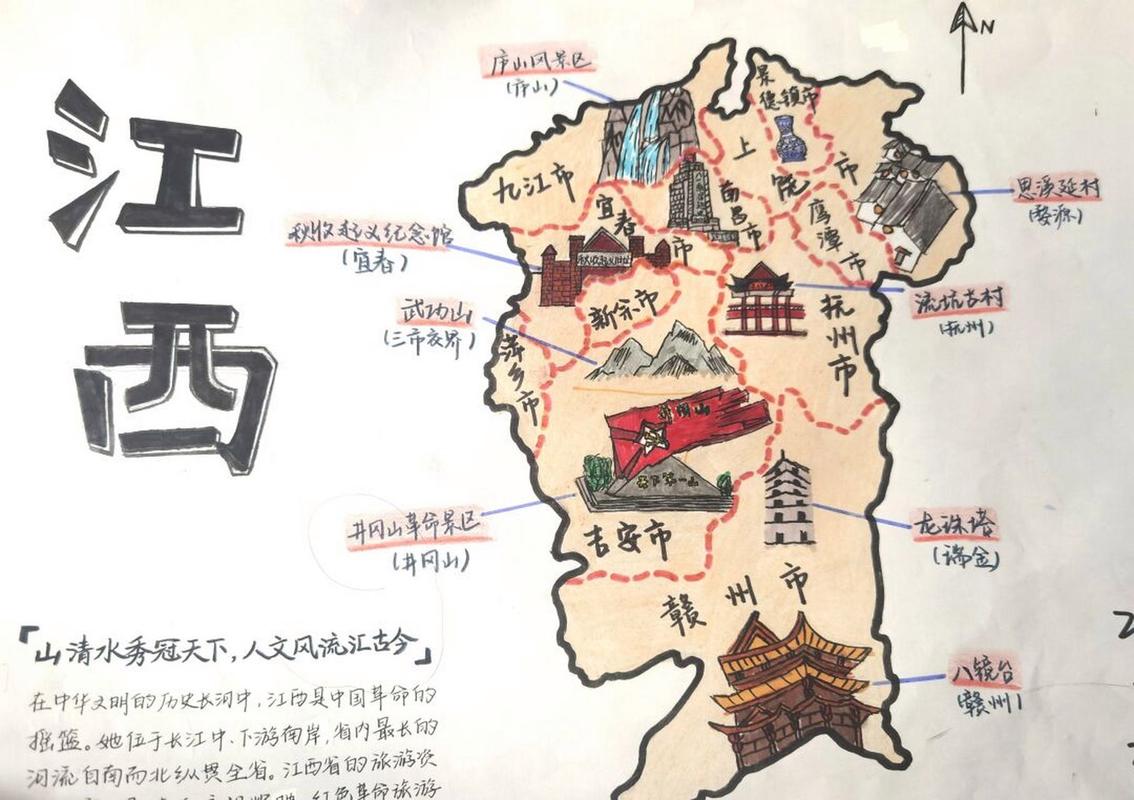 江西
N
庐山风景区
(庐山)
景德镇市
上饶市
九江市
宜春市
南昌市
鹰潭市
思溪延村
(婺源)
秋收起义纪念馆
(宜春)
新余市
抚州市
流坑古村
(抚州)
武功山
(三市交界)
萍乡市
井冈山
天下第一山
井冈山革命景区
(井冈山)
吉安市
龙珠塔
(瑞金)
赣州市
八镜台
(赣州)
「山清水秀冠天下，人文风流汇古今」
在中华文明的历史长河中，江西是中国革命的
摇篮。她位于长江中、下游南岸，省内最长的
河流自南而北纵贯全省。江西省的旅游资
红色革命旅游